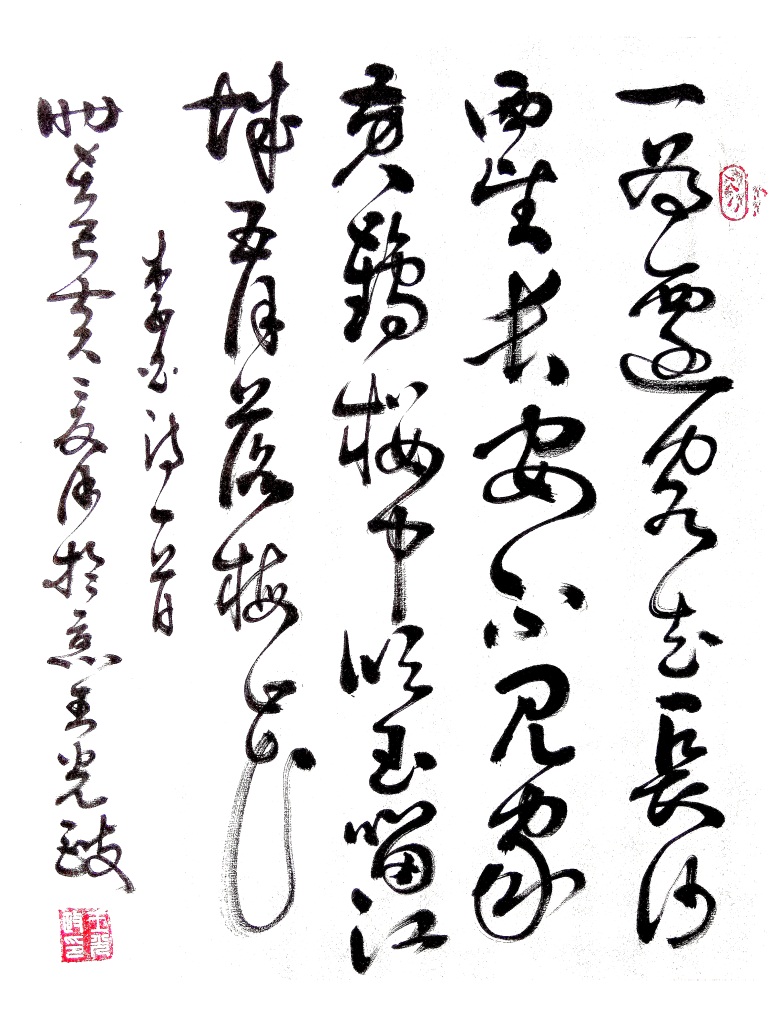 一為遷客去長沙
西望長安不見家
黄鶴楼中吹玉笛江
城五月落梅花
李白詩一首
己亥夏月於京王光